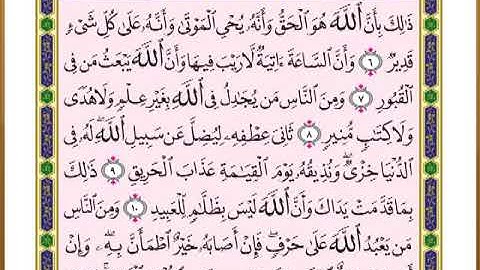 ذَٰلِكَ بِأَنَّ ٱللَّهَ هُوَ ٱلْحَقُّ وَأَنَّهُۥ يُحْىِ ٱلْمَوْتَىٰ وَأَنَّهُۥ عَلَىٰ كُلِّ شَىْءٍ
قَدِيرٌ ٦ وَأَنَّ ٱلسَّاعَةَ ءَاتِيَةٌ لَّا رَيْبَ فِيهَا وَأَنَّ ٱللَّهَ يَبْعَثُ مَن فِى
ٱلْقُبُورِ ٧ وَمِنَ ٱلنَّاسِ مَن يُجَٰدِلُ فِى ٱللَّهِ بِغَيْرِ عِلْمٍ وَلَا هُدًى
وَلَا كِتَٰبٍ مُّنِيرٍ ٨ ثَانِىَ عِطْفِهِۦ لِيُضِلَّ عَن سَبِيلِ ٱللَّهِ ۖ لَهُۥ فِى
ٱلدُّنْيَا خِزْىٌ ۖ وَنُذِيقُهُۥ يَوْمَ ٱلْقِيَٰمَةِ عَذَابَ ٱلْحَرِيقِ ٩ ذَٰلِكَ
بِمَا قَدَّمَتْ يَدَاكَ وَأَنَّ ٱللَّهَ لَيْسَ بِظَلَّٰمٍ لِّلْعَبِيدِ ١٠ وَمِنَ ٱلنَّاسِ
مَن يَعْبُدُ ٱللَّهَ عَلَىٰ حَرْفٍ ۖ فَإِنْ أَصَابَهُۥ خَيْرٌ ٱطْمَأَنَّ بِهِۦ ۖ وَإِنْ